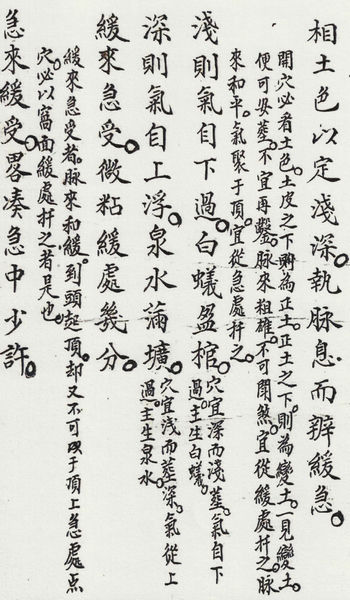 相土色以定淺深。執脉息而辨緩急。
開穴必看土色。土皮之下則為正土。正土之下。則為變土。一見變土。
便可安葬。不宜再鑿。脉來粗雄。不可閗煞。宜從緩處扦之。脉
來和平。氣聚于頂。宜從急處扦之。
淺則氣自下過。白蟻盈棺。
穴宜深而淺葬。氣自下
過。主生白蟻。
深則氣自上浮。泉水滿壙。
穴宜淺而葬深。氣從上
過。主生泉水。
緩來急受。微粘緩處幾分。
緩來急受者。脉來和緩。到頭起頂。却又不可取于頂上急處点
穴。必以窩面緩處扦之者是也。
急來緩受。畧湊急中少許。